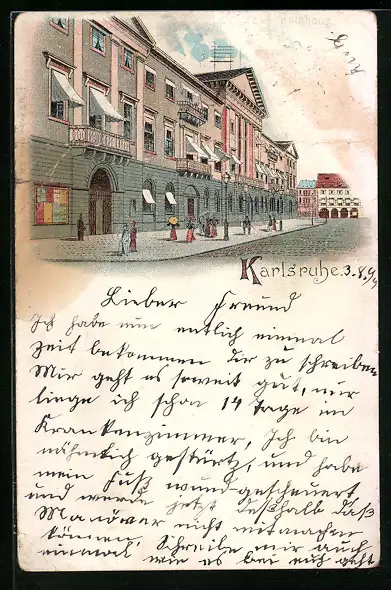 Rathhaus
Karlsruhe. 3.8.99
Lieber Freund
Ich habe nun entlich einmal
zeit bekommen Dir zu schreiben
Mir geht es soweit gut, nur
liege ich schon 14 Tage im
Krankenzimmer, Ich bin
nähmlich gestürtz, und habe
mein Fuß wund gescheuert
und werde jetzt deßhalb das
Manöver nicht mitmachen
können. Schreibe mir auch
einmal wie es bei euch geht